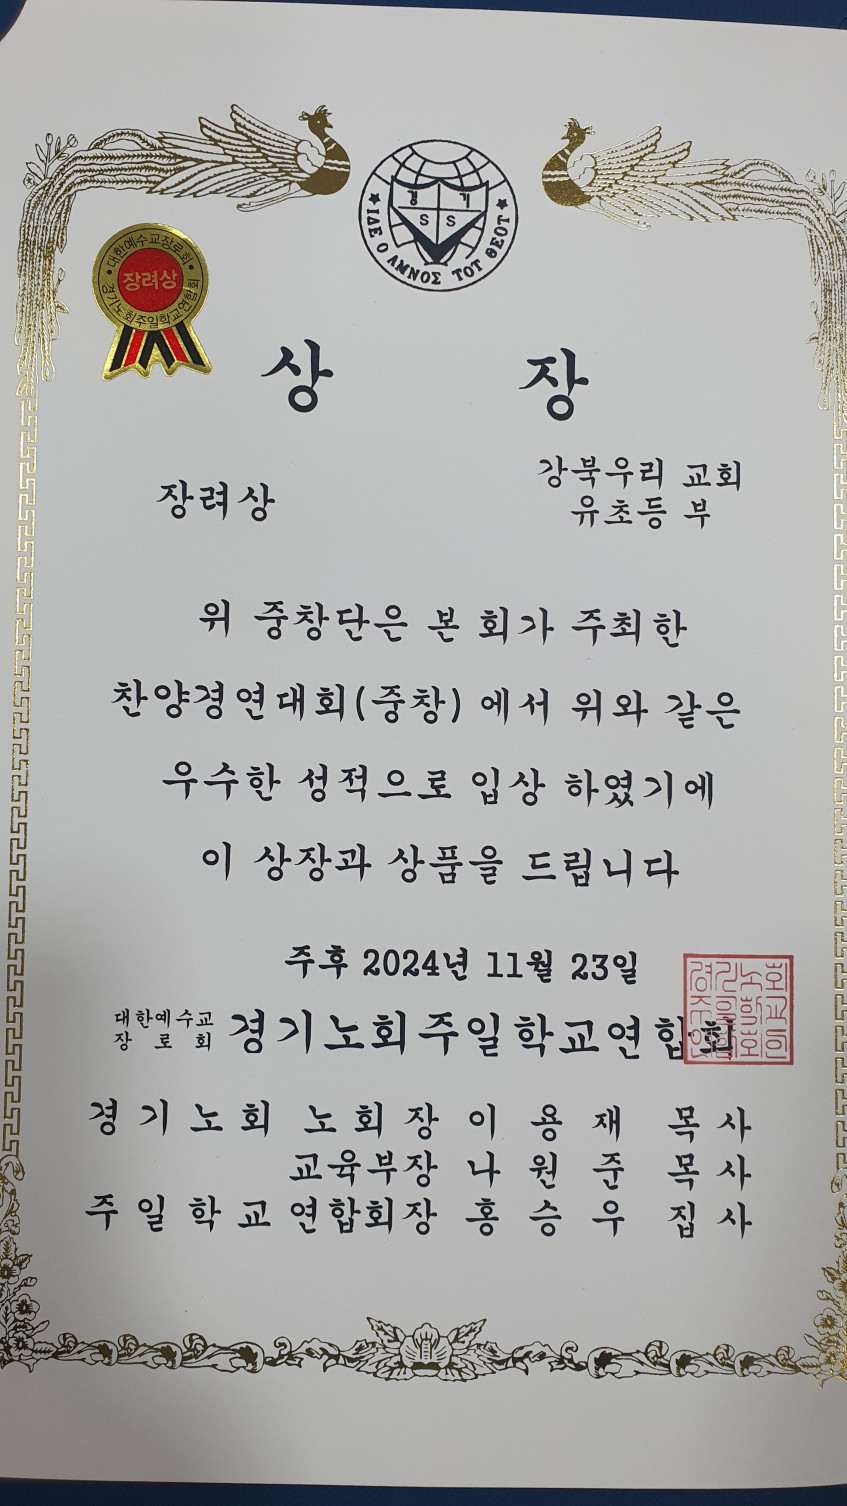 경 기
S S
★ ΙΔΕ Ο ΑΜΝΟΣ ΤΟΤ ΘΕΟΤ ★
• 대한예수교장로회 •
장려상
경기노회주일학교연합회
상 장
장려상
강북우리 교회
유초등 부
위 중창단은 본 회가 주최한
찬양경연대회(중창) 에서 위와 같은
우수한 성적으로 입상 하였기에
이 상장과 상품을 드립니다
주후 2024년 11월 23일
대한예수교
장 로 회
경기노회주일학교연합회
경 기 노 회 노 회 장 이 용 재 목 사
교육부장 나 원 준 목 사
주 일 학 교 연합회장 홍 승 우 집 사